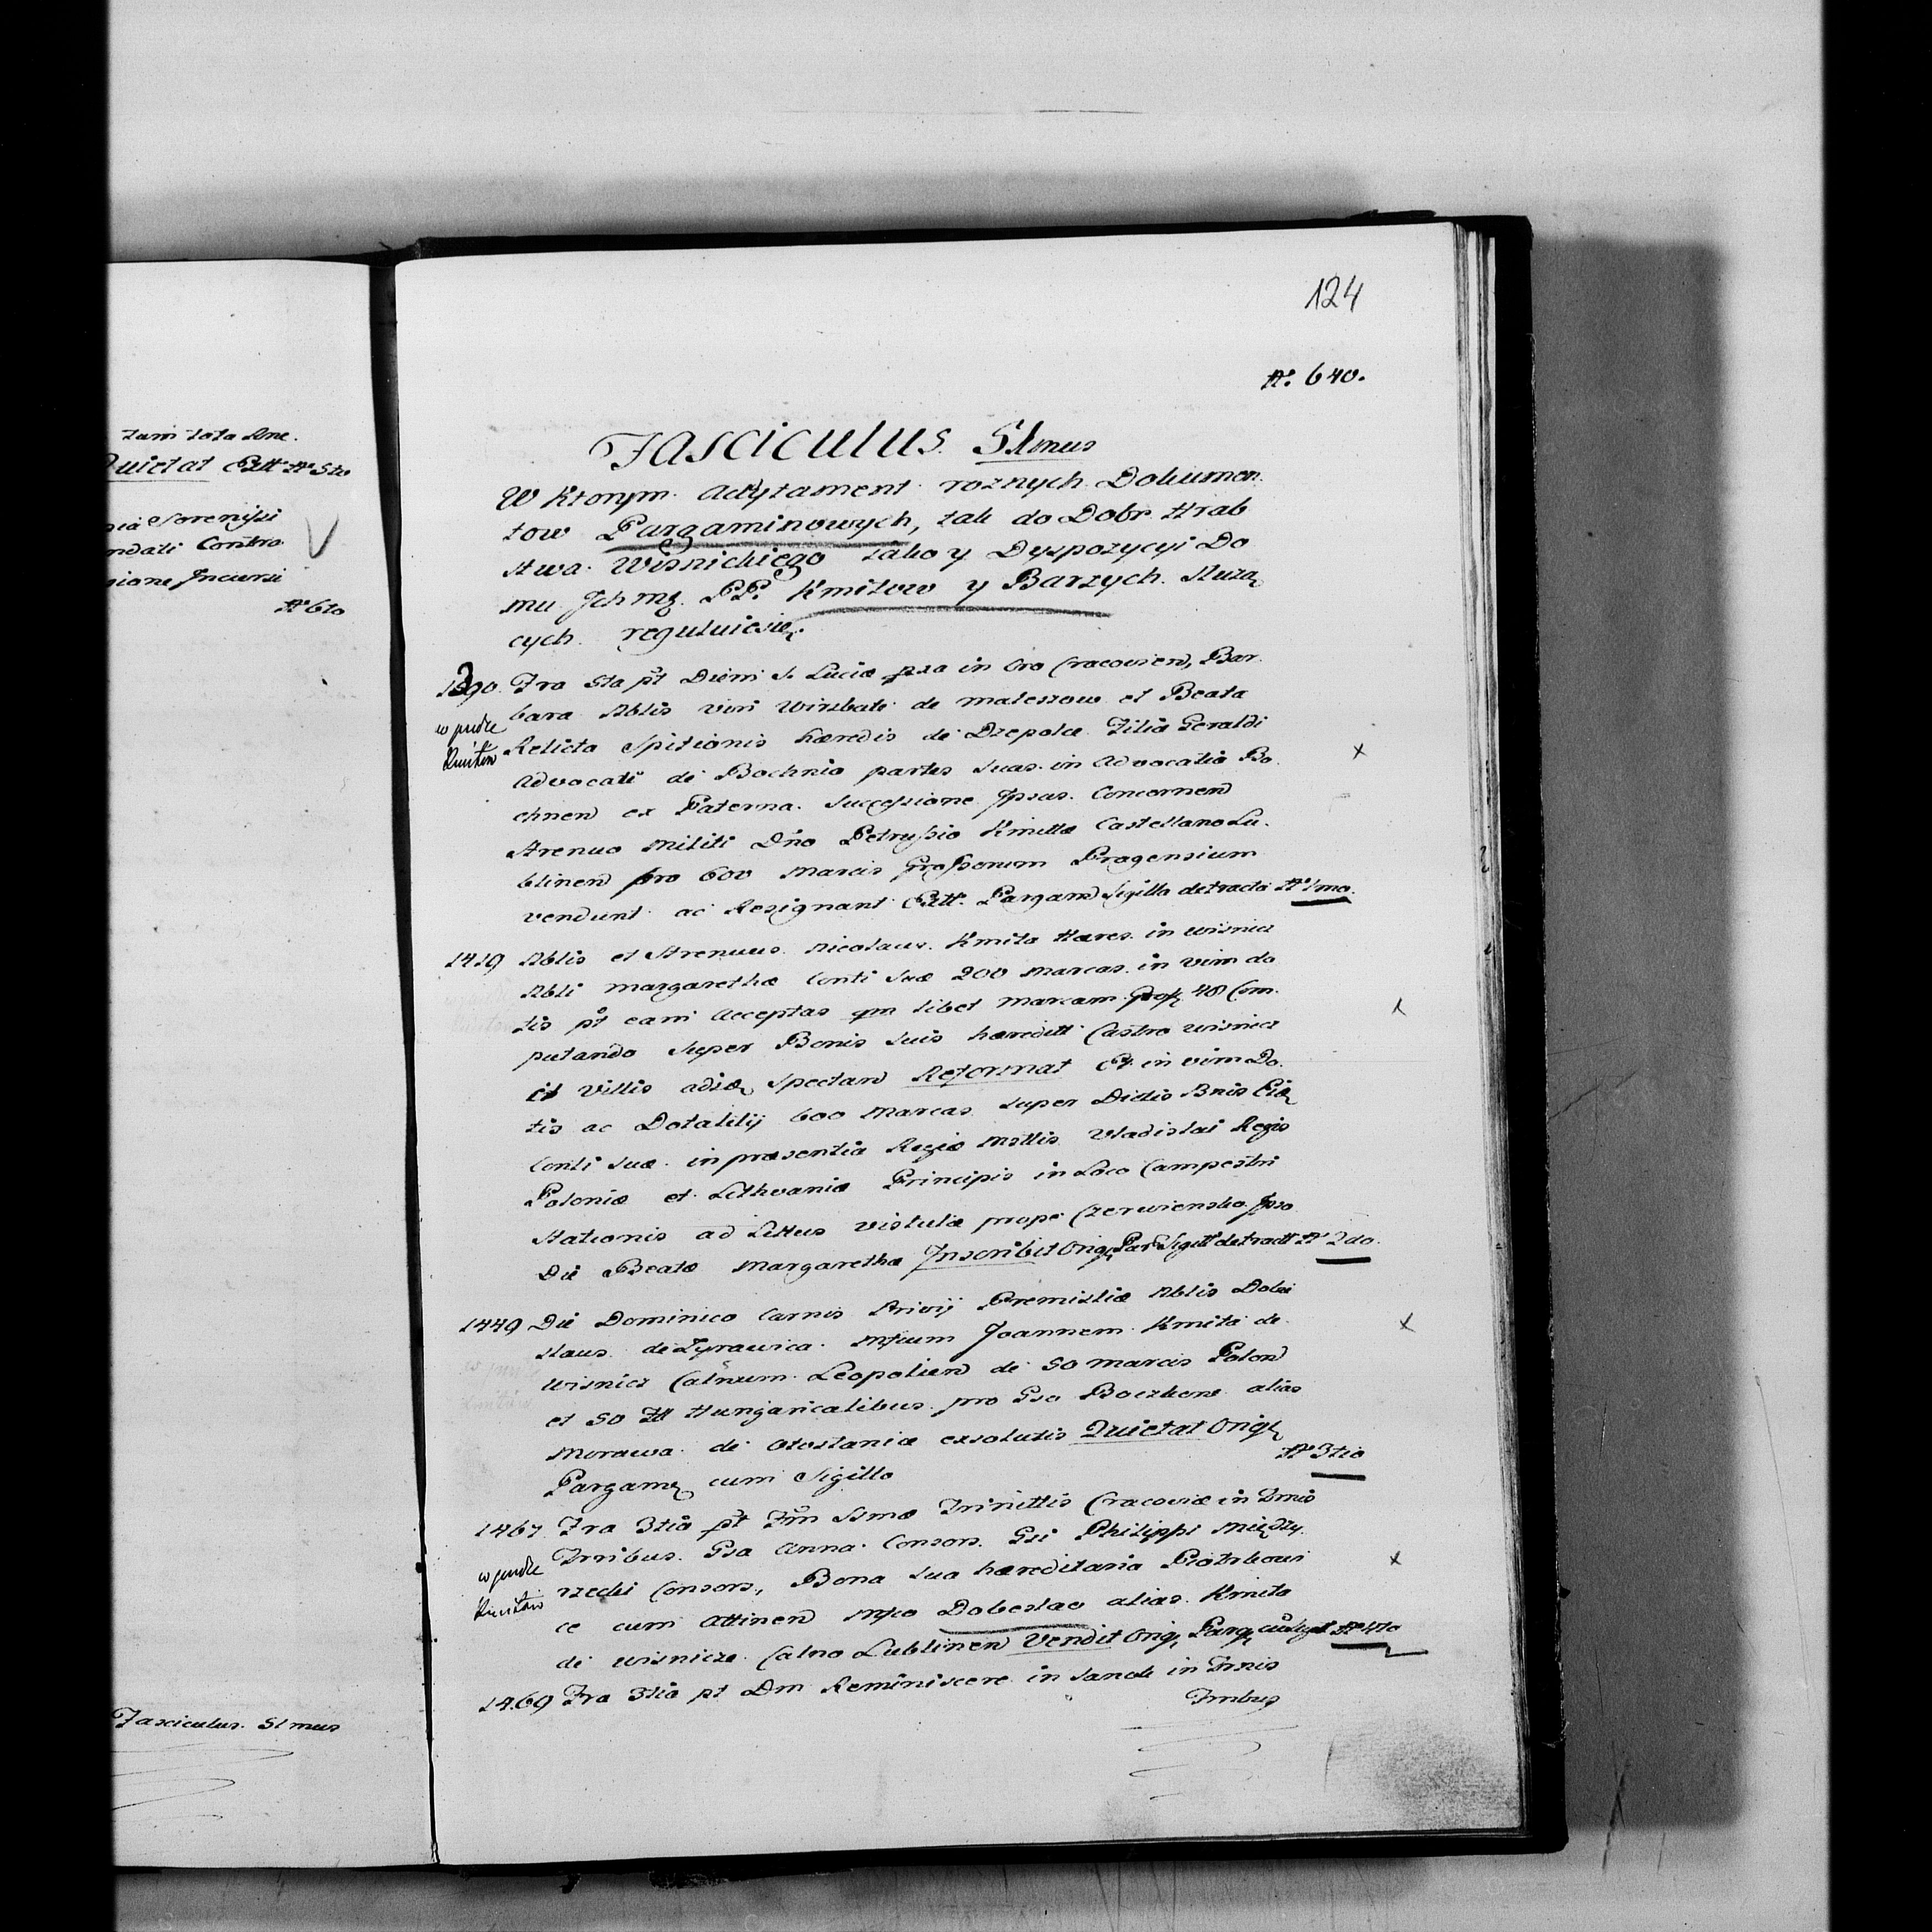 tam Tota Ane.
Quietat Extt. No 5to
Serenissi
ndati Contro
sione Incursi
No 6to
Fasciculus. 51mus
124
No. 640.
Fasciculus. 51mus
W Ktorym. Adytament roznych Dokumen.
tow Pargaminowych, tak do Dobr Hrab
stwa. Wisnickiego iako y Dyspozycyi Do
mu Jchmq. PP. Kmitow y Barzych. sluzą
cych. reguluiesię.
1390. Fra 6ta pt Diem S. Luciæ in Cro Cracovien, Bar.
bara Nblis viri Wirzbate de maleszow et Beata
w pudle
Kmitow
Relicta Spitionis hæredis de Dzepolce Filiæ Geraldi
Advocati de Bochnia partes suas. in Advocatia Bo.
chnen ex Paterna. Successione Ipsas. Concernen
Strenuo Militi Dno Petrussio Kmitta Castellano Lu.
blinen pro 600 Marcis Grossorum Pragensium
vendunt ac Resignant Extt. Pargam Sigilla detracta No 1mo.
1419 Nblis et Strenuus. Nicolaus. Kmita Hæres. in wisnicz
Nbli margarethæ Conti Suæ 200 marcas. in vim do
tis pt eam Acceptas qm libet marcam 48 Com.
putando super Bonis suis hæreditt Castro wisnicz
et villis adid spectan Reformat Et in vim Do.
tis ac Dotalitij 600 Marcas super Dictis Bnis
Conti suæ. in præsentia Regiæ Mattis Vladislai Regis
Poloniæ et Lithvaniæ Principis in Loco Campestri
Stationis ad Littus vistulæ prope Czerwiensko Ipso
Die Beatæ Margarethæ Inscribit Orig Par Sigill detractt No 2do.
1449 Die Dominico Carnis Privij Premisliæ Nblis Dobe
slaus de Zyrawica. Mfcum Joannem Kmita de
wisnicz Calnum Leopolien de 50 marcis Polon
et 50 fll Hungaricalibus. pro Gso Boczkone alias
Morawa de Ostaniæ exsolutis Quietat Orig
No 3tio
Pargam cum Sigillo
1467. Fra 3tia pt Fm Ssmæ Trinittis Cracoviæ in Trmis
Trribus. Gsa Anna Consors. Gsi Philippi Między.
w pudle
Kmitow
rzecki Consors., Bona sua hæreditaria Piotrkowi
ce cum Attinen Mfco Dobeslao alias. Kmita
de wisnicze Calno Lublinen Vendit Orig, Parg, No 4to
1469 Fra 3tia pt Dm Reminiscere in Sanok in Trmis
Trribus